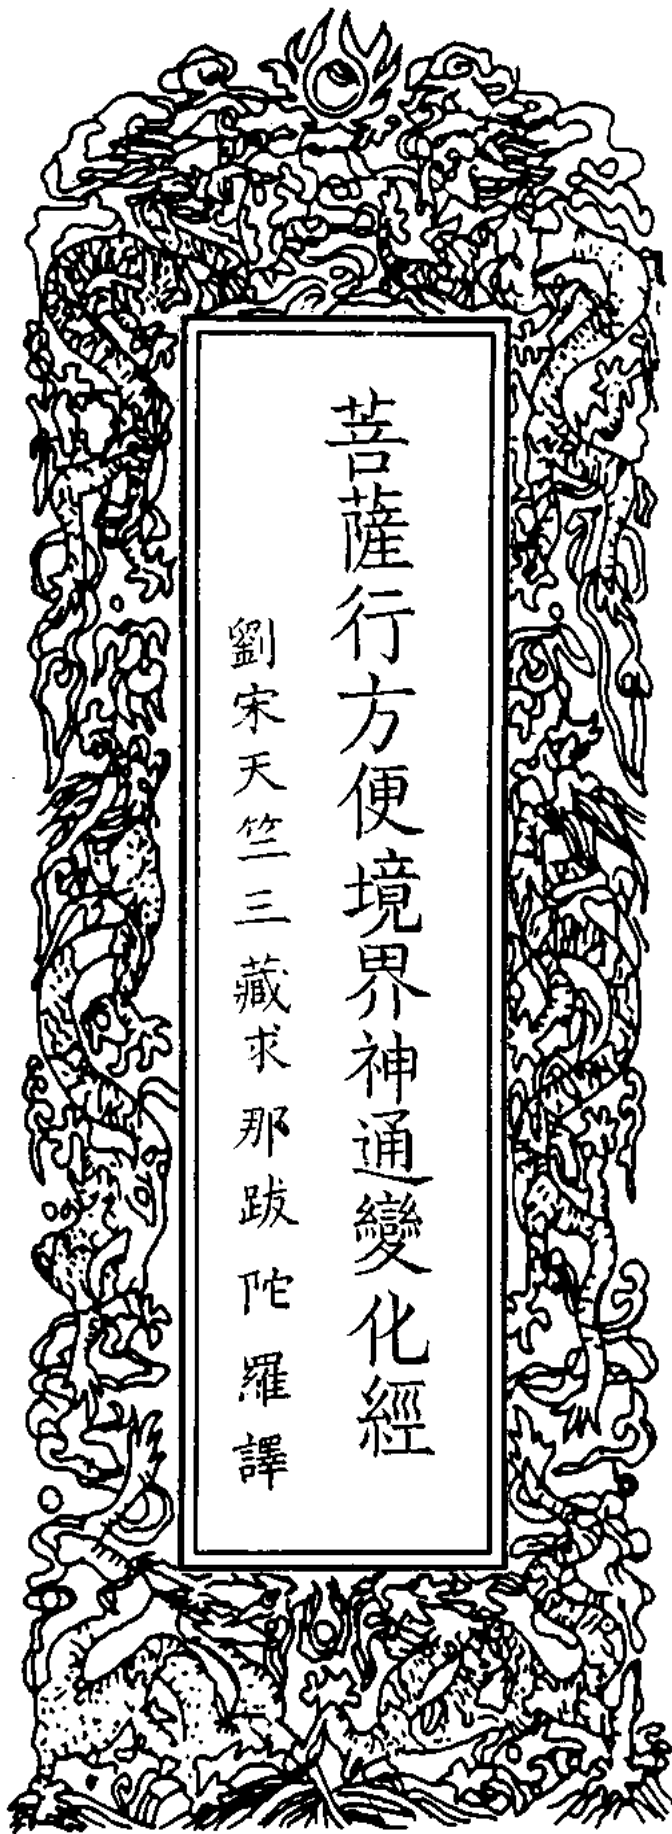 菩薩行方便境界神通變化經
劉宋天竺三藏求那跋陀羅譯